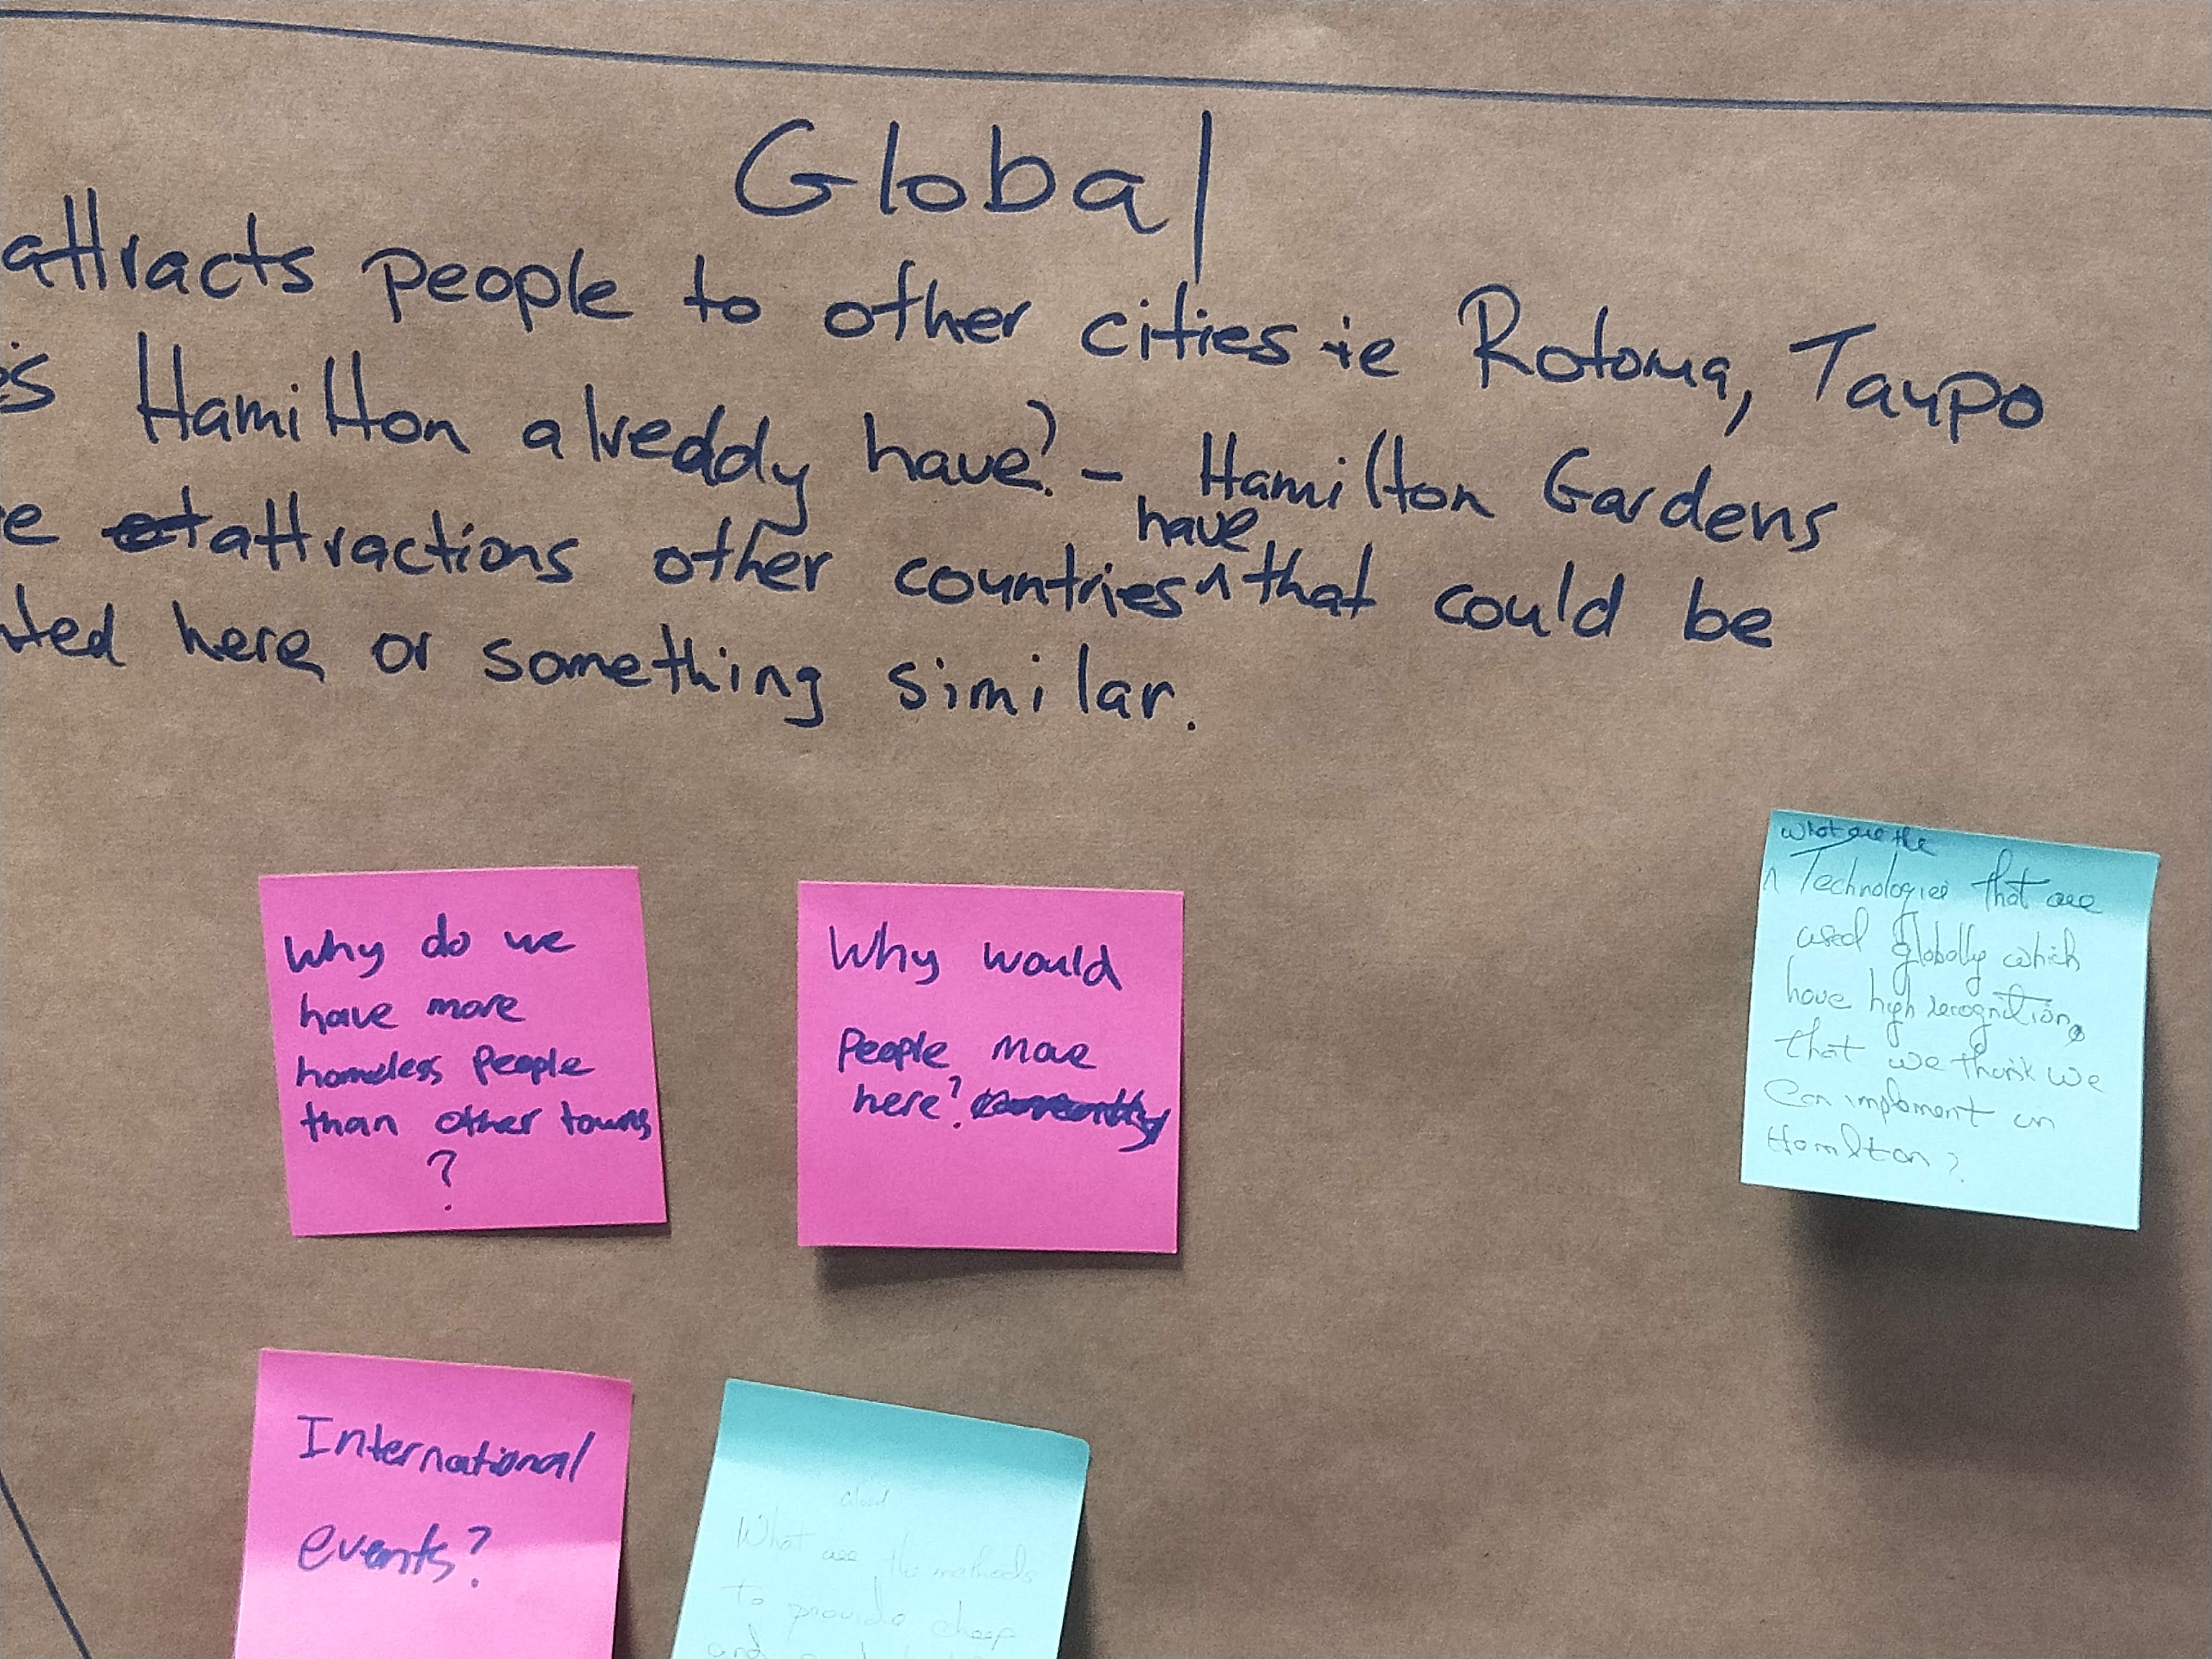 Global
attracts people to other cities ie Rotorua, Taupo
Hamilton alreddy have? - Hamilton Gardens
attractions other countries ^ have that could be
here or something similar.
Why do we
have more
homeless people
than other towns
?
Why would
People move
here?
what are the
^ Technologies that are
used globally which
have high recognition,
that we think we
can implement in
Hamilton?
International
events?
What are the methods
to provide cheap
and